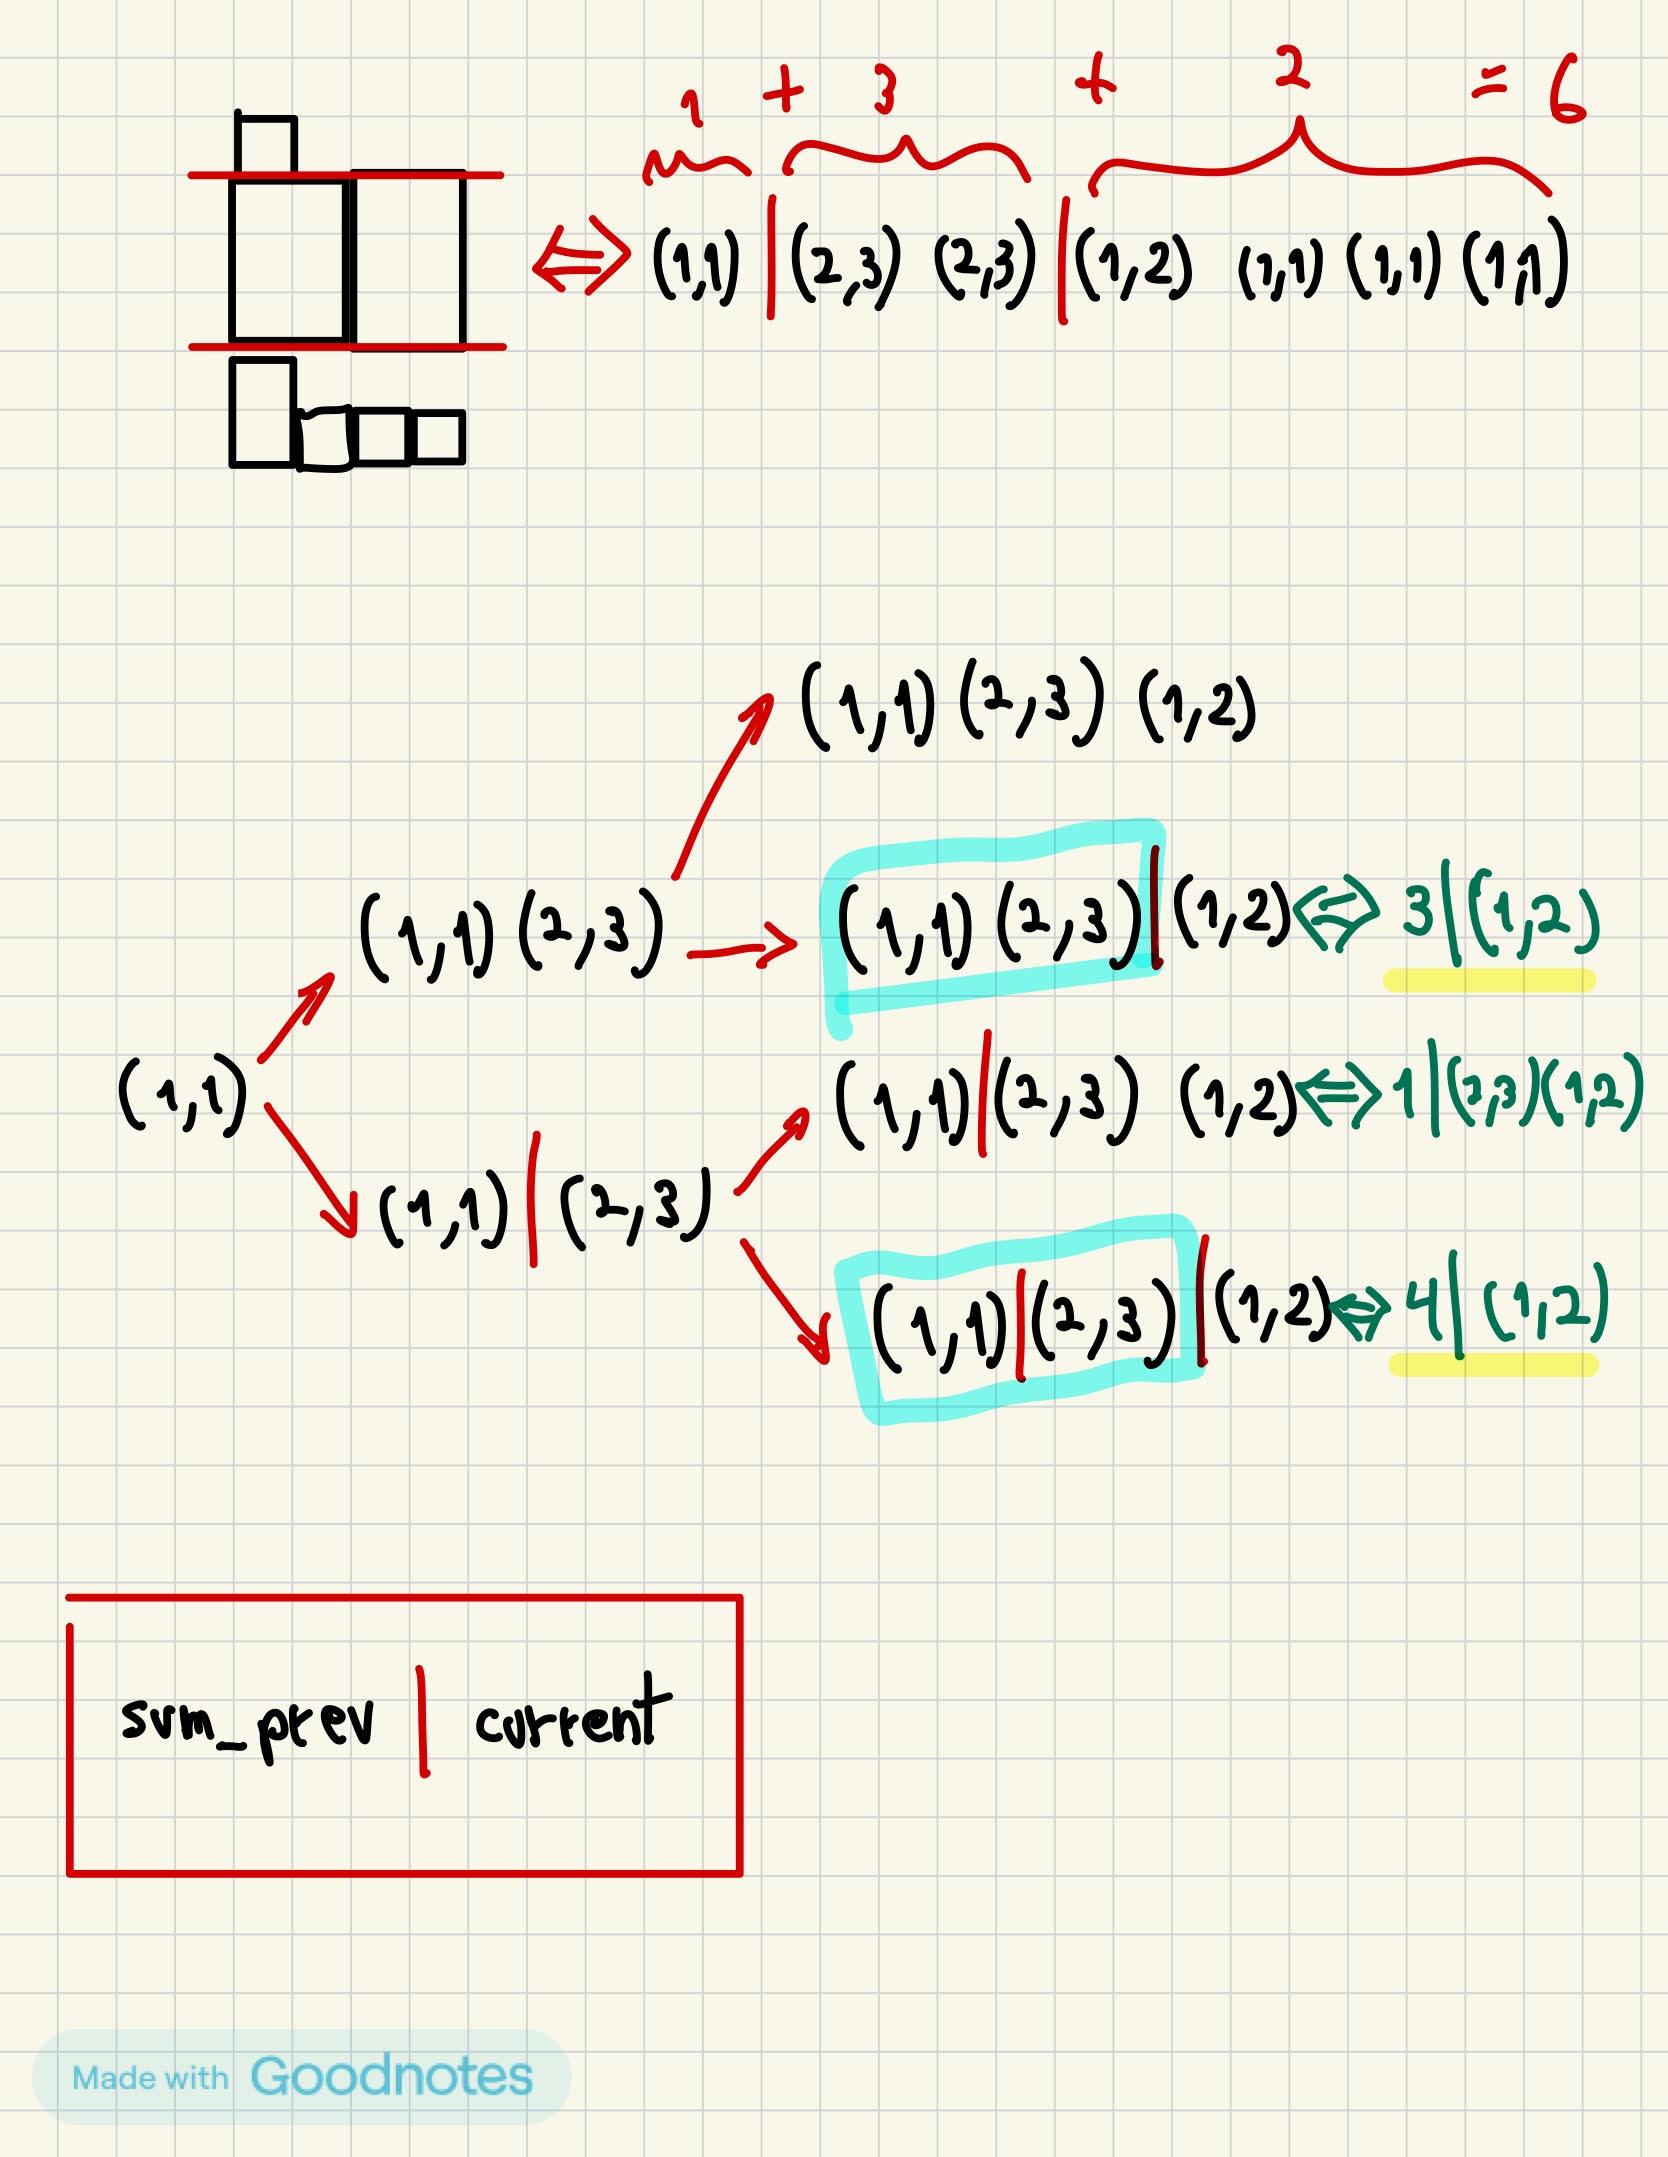 1 + 3 + 2 = 6
(1,1) | (2,3) (2,3) | (1,2) (1,1) (1,1) (1,1)
(1,1) (2,3) (1,2)
(1,1) (2,3) (1,1) (2,3) | (1,2) ⇔ 3 | (1,2)
(1,1) (1,1) | (2,3) (1,2) ⇔ 1 | (2,3) (1,2)
(1,1) | (2,3)
(1,1) | (2,3) | (1,2) ⇔ 4 | (1,2)
sum_prev | current
Made with Goodnotes